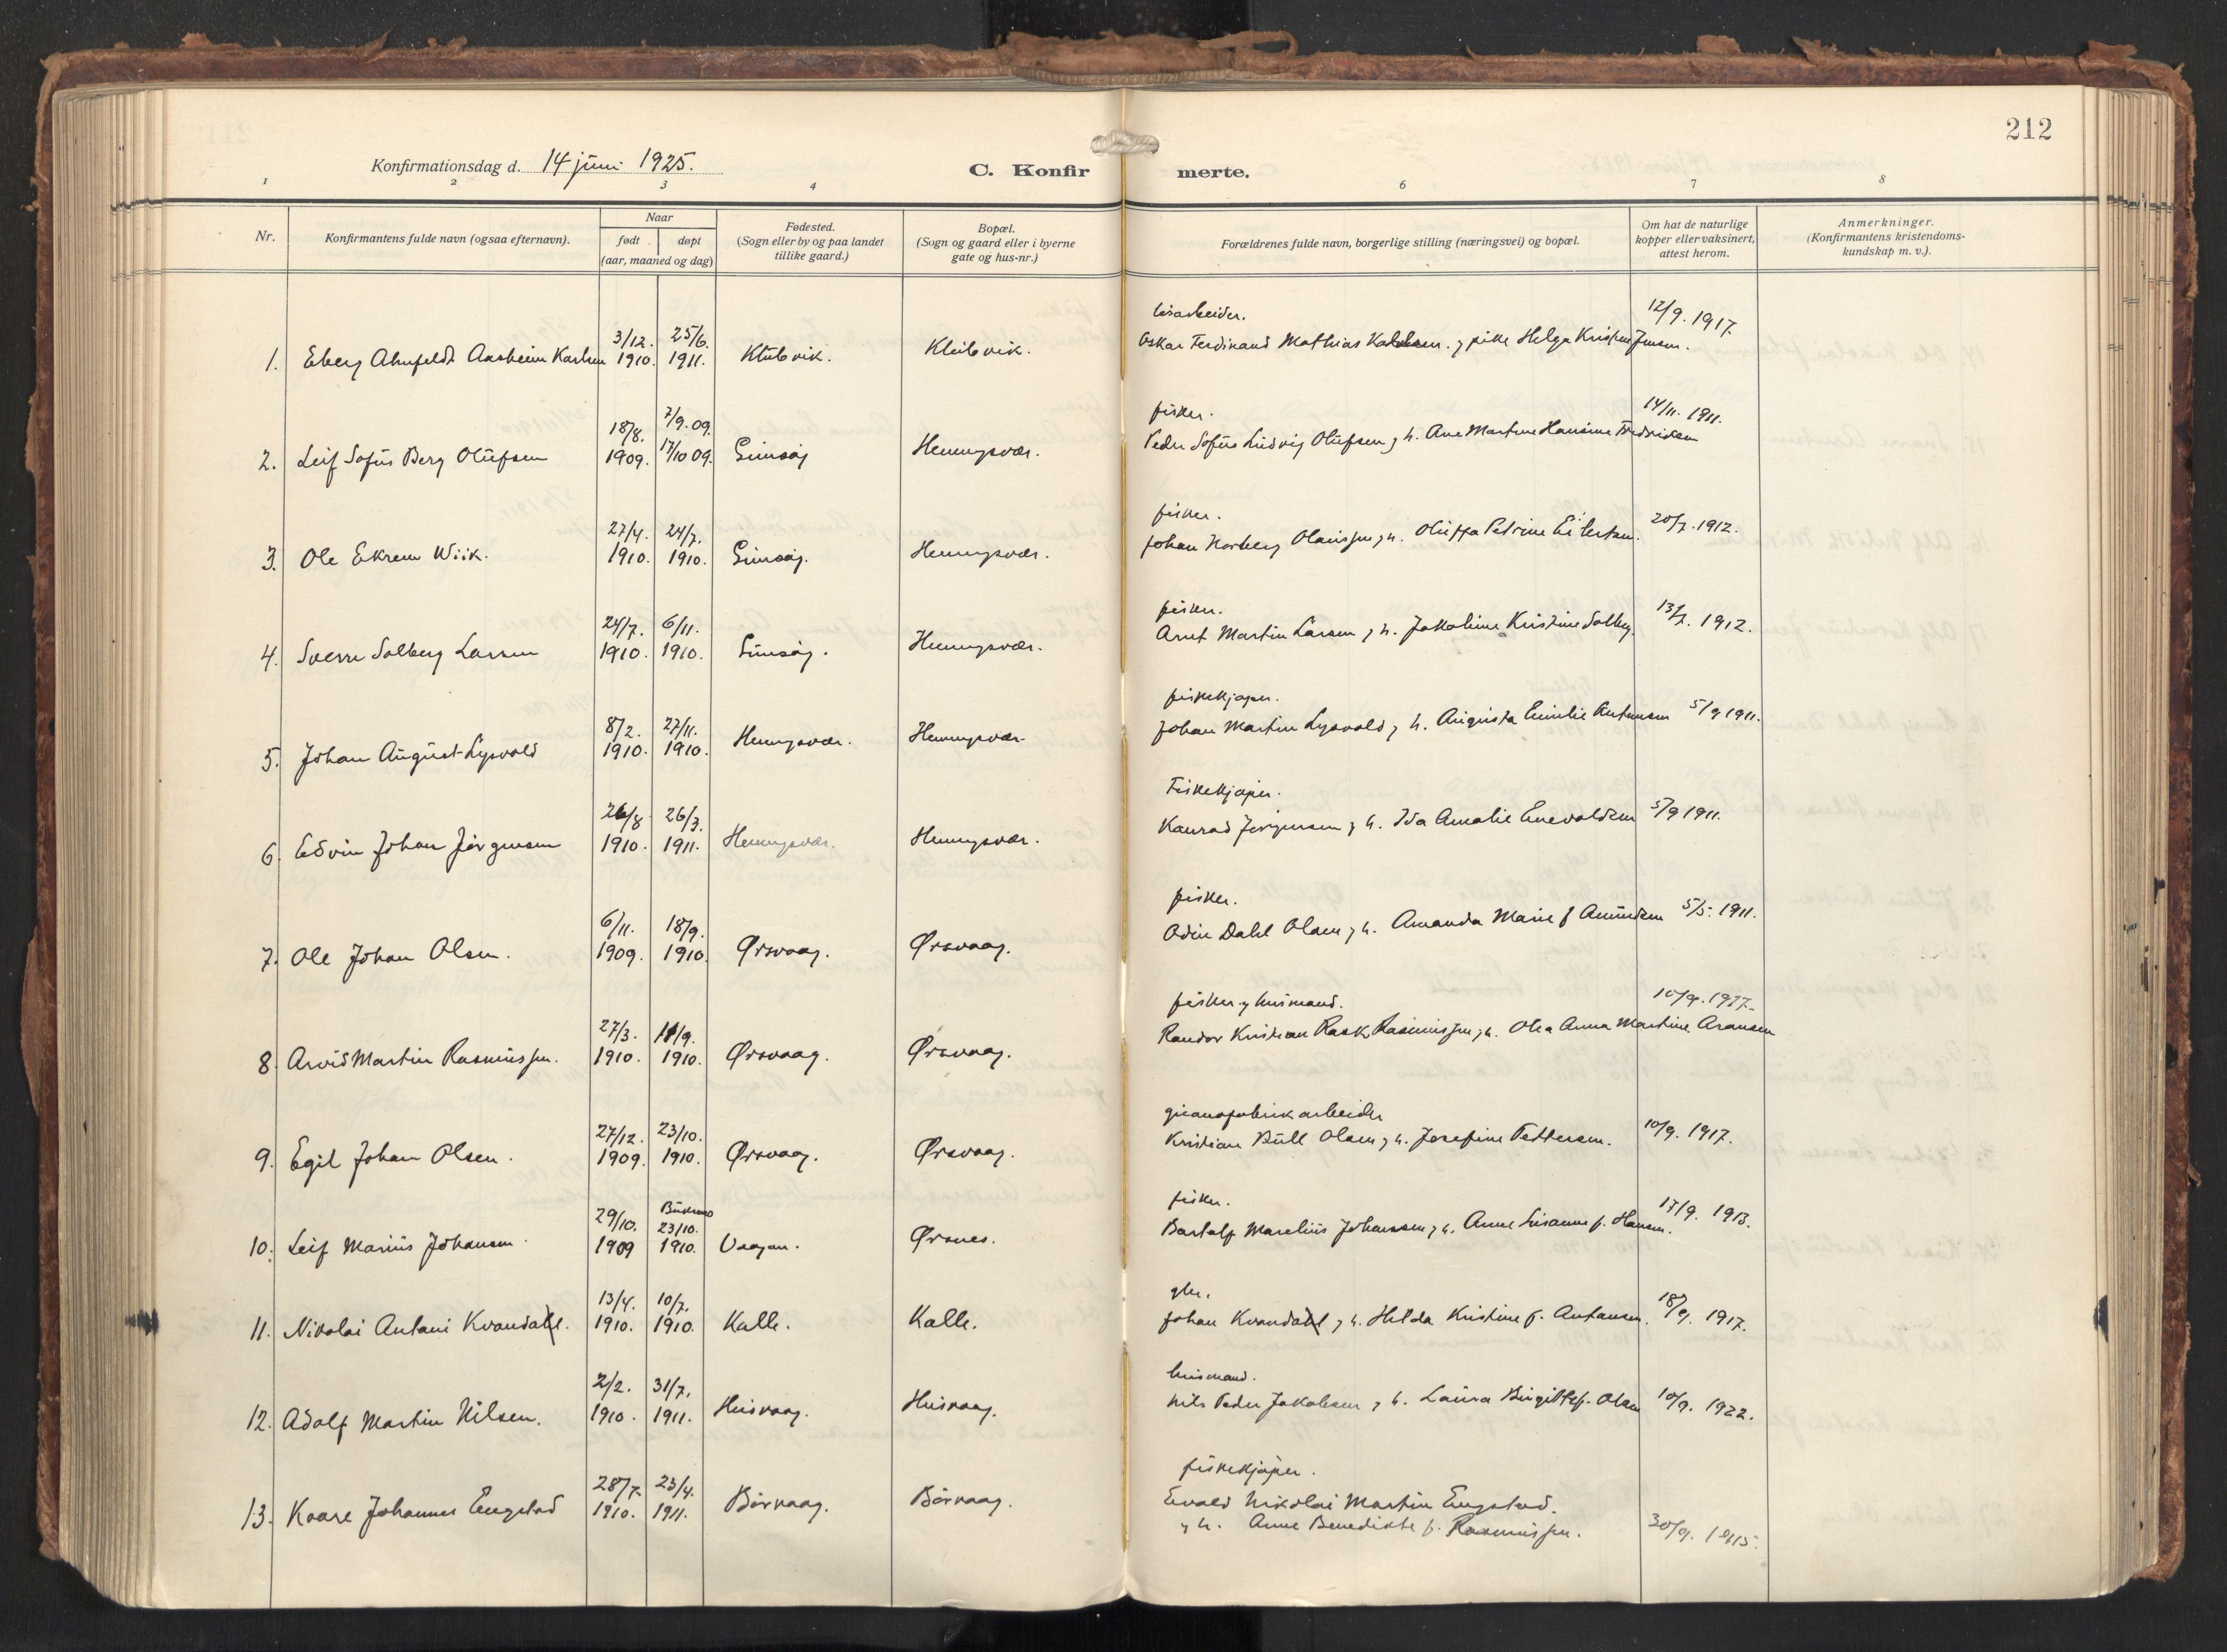 212
Konfirmationsdag d. 14 juni 1925.
C. Konfirmerte.
1 2 3 4 6 7 8
Nr. Konfirmantens fulde navn (ogsaa efternavn). Naar født døpt (aar, maaned og dag) Fødested. (Sogn eller by og paa landet tillike gaard.) Bopæl. (Sogn og gaard eller i byerne gate og hus-nr.) Forældrenes fulde navn, borgerlige stilling (næringsvei) og bopæl. Om hat de naturlige kopper eller vaksinert, attest herom. Anmerkninger. (Konfirmantens kristendoms-kundskap m. v.).
3/12. 25/6. 12/9. 1917.
1. Aasheim Karlsen 1910. 1911. Oskar Ferdinand Mathias g pike Helga Kristine Jensen.
fisker.
18/8. 7/9. 09. 14/11. 1911.
2. Leif Sofus Berg Olufsen 1909. 17/10 09. Gimsøy Henningsvær. Peder Sofus Ludvig Olufsen g h. Ane Martine Hansine Fredriksen
fisker.
27/4. 24/7. 20/7. 1912.
3. Ole Ekrem Wiik. 1910. 1910. Gimsøy. Henningsvær. Johan Norberg Olaussen g h. Oluffa Petrine Eilertsen.
fisker.
24/7. 6/11. 13/7. 1912.
4. Sverre Solberg Larsen 1910. 1910. Gimsøy. Henningsvær. Arnt Martin Larsen g h. Jakobine Kristine Solberg.
fiskekjøper.
8/2. 27/11. 5/9 1911.
5. Johan August Lysvold 1910. 1910. Henningsvær. Henningsvær Johan Martin Lysvold g h. Augusta Emilie Antonsen
Fiskekjøper.
26/8 26/3. 5/9 1911.
6. Edvin Johan Jørgensen 1910. 1911. Henningsvær. Henningsvær. Konrad Jørgensen g h. Ida Amalie Enevoldsen
fisker.
6/11. 18/9. 5/5. 1911.
7. Ole Johan Olsen. 1909. 1910. Ørsvaag. Ørsvaag. Odin Dahl Olsen g h. Amanda Marie f Amundsen
fisker g husmand.
27/3. 11/9. 10/9. 1917.
8. Arvid Martin Rasmussen. 1910. 1910. Ørsvaag. Ørsvaag. Kristian Rask Rasmussen g h. Olea Anna Martine Aronsen
guanofabrikarbeider
27/12. 23/10. 10/9. 1917.
9. Egil Johan Olsen. 1909. 1910. Ørsvaag. Ørsvaag. Kristian Bull Olsen g h. Josefine Pettersen.
fisker.
29/10. 23/10. 17/9. 1913.
10. Leif Marius Johansen. 1909 1910. Vaagan. Ørsnes. Bartolf Marelius Johansen g h. Anne Susanne f. Hansen.
gbr.
13/4. 10/7. 18/9. 1917.
11. Nikolai Antoni Kvandal. 1910. 1910. Kalle. Kalle. Johan Kvandal g h. Hilda Kristine f. Antonsen.
husmand.
2/2. 31/7. 10/9. 1922.
12. Adolf Martin Nilsen. 1910. 1911. Husvaag. Husvaag. Nils Peder Jakobsen g h. Laura Birgitte f. Olsen
fiskekjøper.
28/7. 23/4.
13. Kaare Johannes Engstad 1910. 1911. Børvaag. Børvaag. Evald Nikolai Martin Engstad.
g h. Anne Benedikte f. Rasmussen. 30/9. 1915.